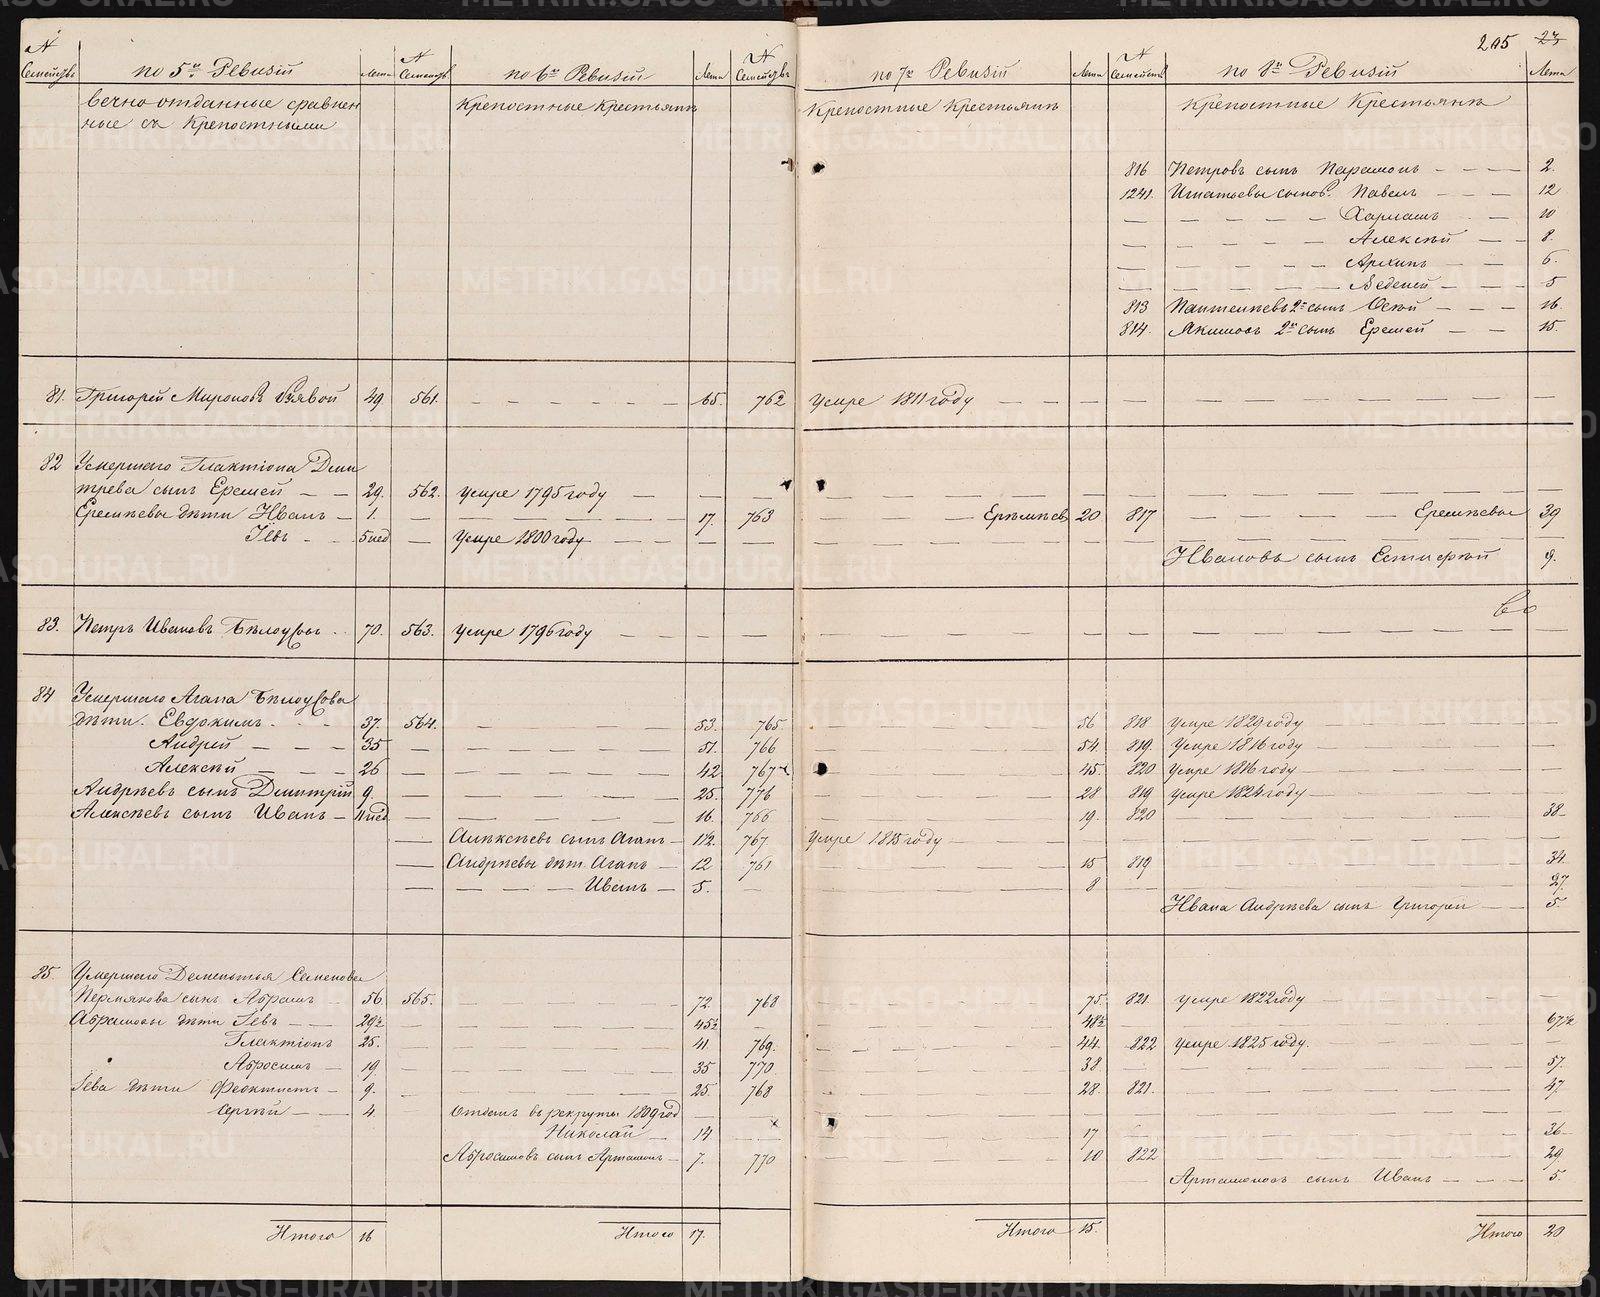 205 23
№ Семействъ по 5й Ревизіи Лета № Семействъ по 6й Ревизіи Лета № Семействъ по 7й Ревизіи Лета № Семействъ по 8й Ревизіи Лета
вечно отданные сравнен Крепостные Крестьянъ Крепостные Крестьянъ Крепостные Крестьянъ
ные съ Крепостными
816 Петровъ сынъ Парамонъ 2.
1241. Игнатьевы сынов. Павелъ 12
Харламъ 10
Алексѣй 8.
Архипъ 6.
Веденей 5
813 Пантелѣевъ 2й сынъ Осѣй 16.
814. Якимовъ 2й сынъ Еремей 15.
81. Григорей Мироновъ 49 561. 65. 762 умре 1811 году
82 Умершаго Галактіона Дми
трева сынъ Еремей 29. 562. умре 1795 году
Еремѣевы дѣти Иванъ 1. 17. 763 Ерѣмѣевъ 20 817 Еремѣевы 39
Іевъ 5 нед умре 1800 году
Ивановъ сынъ Естифѣй 9.
Во
83. Петръ Ивановъ Бѣлоусовъ 70. 563. умре 1796 году
84 Умершаго Агапа Бѣлоусова
дѣти. Евдокимъ 37. 564. 53. 765. 56 818. умре 1829 году
Андрей 35 51. 766 54. 819. умре 1816 году
Алексѣй 26 42 767 45. 820 умре 1816 году
Андрѣевъ сынъ Дмитрій 9. 25. 776 28 819 умре 1824 году
Алексѣевъ сынъ Иванъ 11 нед 16. 766 19. 820 38
Алѣксѣевъ сынъ Агапъ 1½ 767. умре 1815 году
Андрѣевы дѣт. Агапъ 12 761 15 819 34.
Иванъ 5. 8 27.
Ивана Андрѣева сынъ Григорей 5.
85. Умершаго Дементья Семенова
Пермякова сынъ Абрамъ 56. 565. 72. 768 75. 821. умре 1822 году
Абрамовы дѣти Іевъ 29½ 45½ 48½ 67½
Галактіонъ 25. 41. 769. 44. 822 умре 1825 году.
Абросимъ 19. 35 770 38. 57.
Іева дѣти Феоктистъ 9. 25. 768 28. 821. 47
Сергѣй 4. отданъ въ рекруты 1809 год
Николай 14 17 36
Абросимовъ сынъ Артамонъ 7. 770 10 822 29
Артамоновъ сынъ Иванъ 5.
Итого 16 Итого 17. Итого 15. Итого 20
METRIKI.GASO-URAL.RU